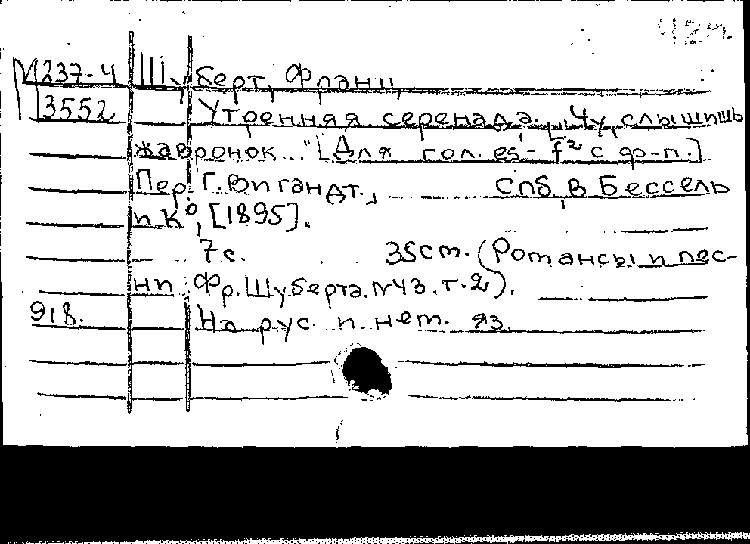 42л.
М237-4 Шуберт, Франц,
3552 Утренняя серенада. "Чу, слышишь
жавронок..." [Для гол. es¹- f² с ф-п.]
Пер. Г. Вигандт., Спб, В. Бессель
и К⁰, [1895].
7 с. 35 cm. (Романсы и пес-
ни Фр. Шуберта. №43. т. 2).
918. На рус. и нем. яз.